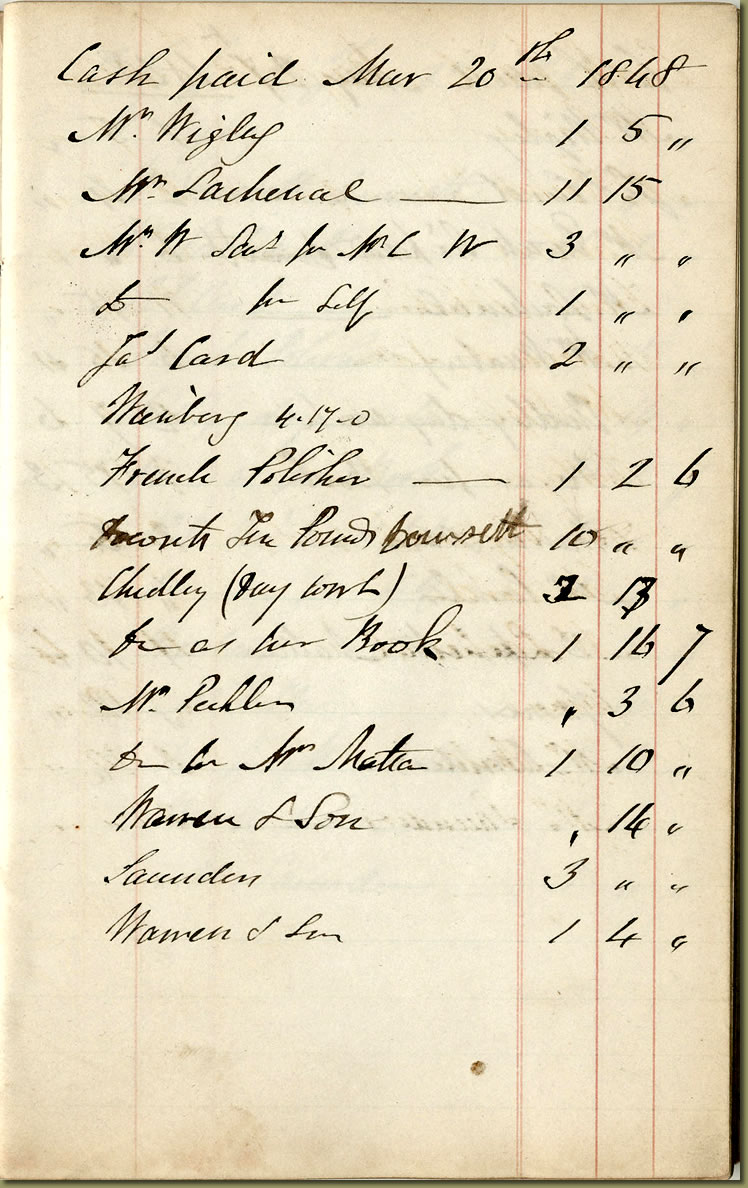 Cash paid Mar 20th 1848
Mr. Wigley 1 5 "
Mr. Lachenal — 11 15
Mr W for Mr C W 3 " "
Do for Self 1 " "
Jas Card 2 " "
4-17-0
French Polisher — 1 2 6
Ten Pounds Dowsett 10 " "
Chidley (Day work) 13
Do as per Book 1 16 7
Mr. " 3 6
Do Mr 1 10 "
Warren & Son " 14 "
Saunders 3 " "
Warren & Son 1 4 "